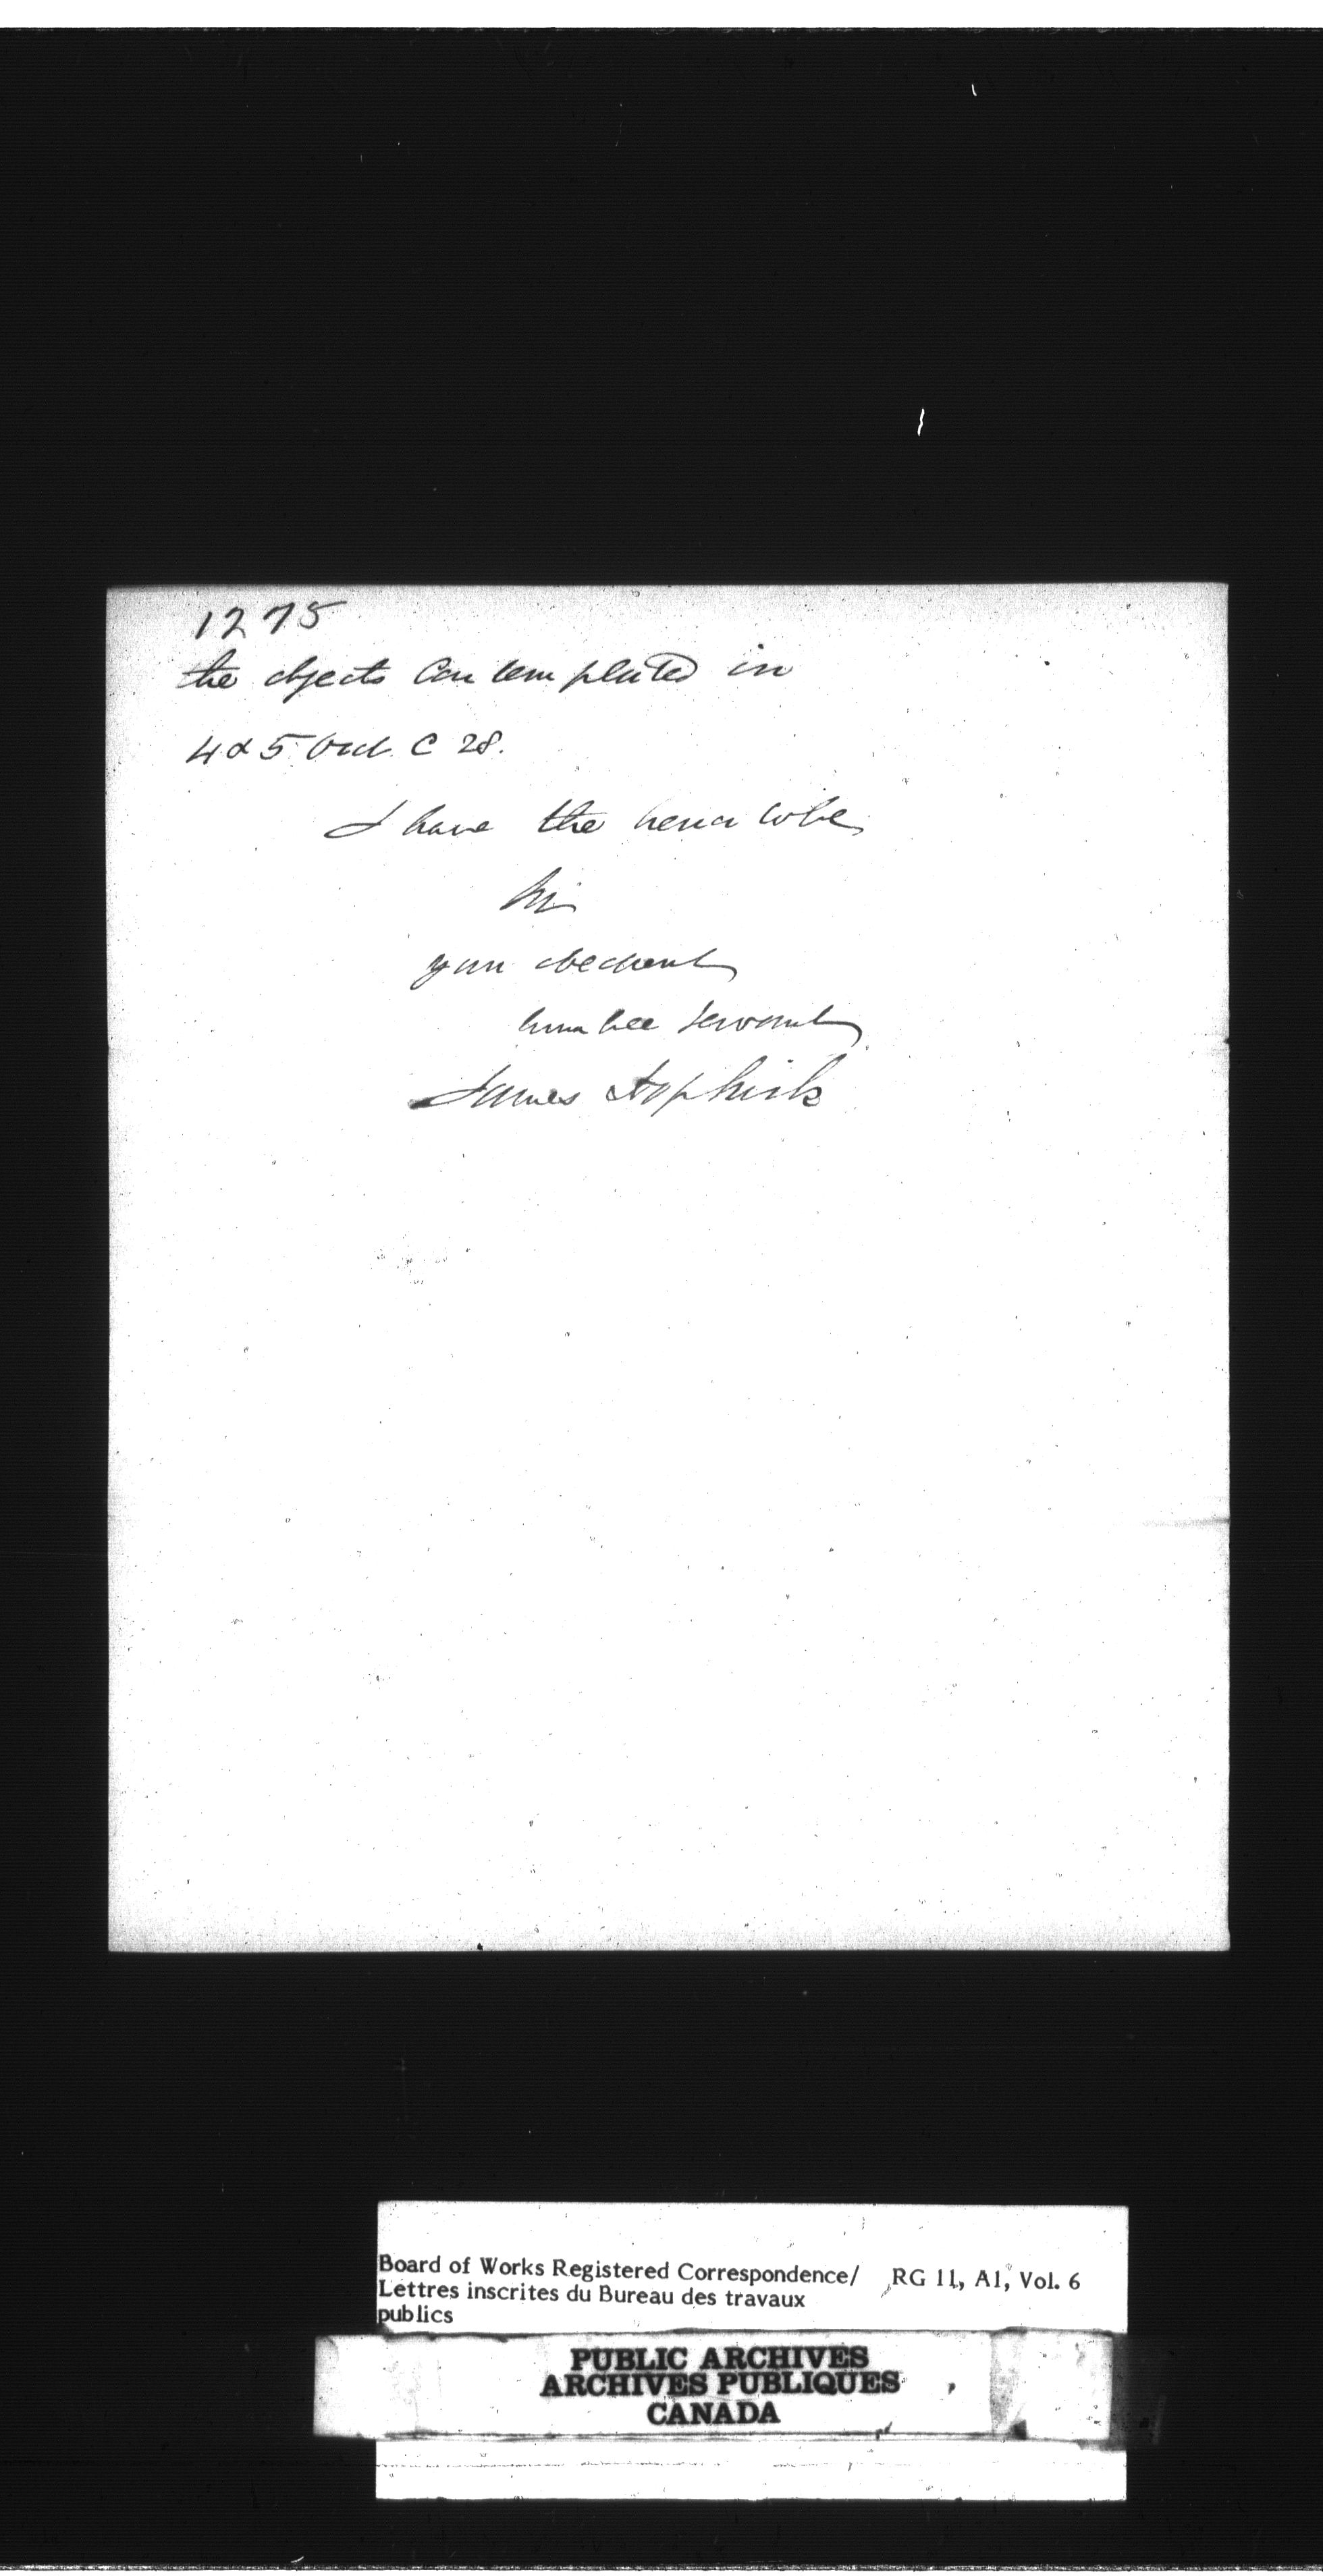 1275
the objects contemplated in
4 & 5 Vict. C 28.
I have the honor to be
Sir
your obedient
humble servant
James Hopkirk
Board of Works Registered Correspondence/ RG 11, A1, Vol. 6
Lettres inscrites du Bureau des travaux
publics
PUBLIC ARCHIVES
ARCHIVES PUBLIQUES
CANADA